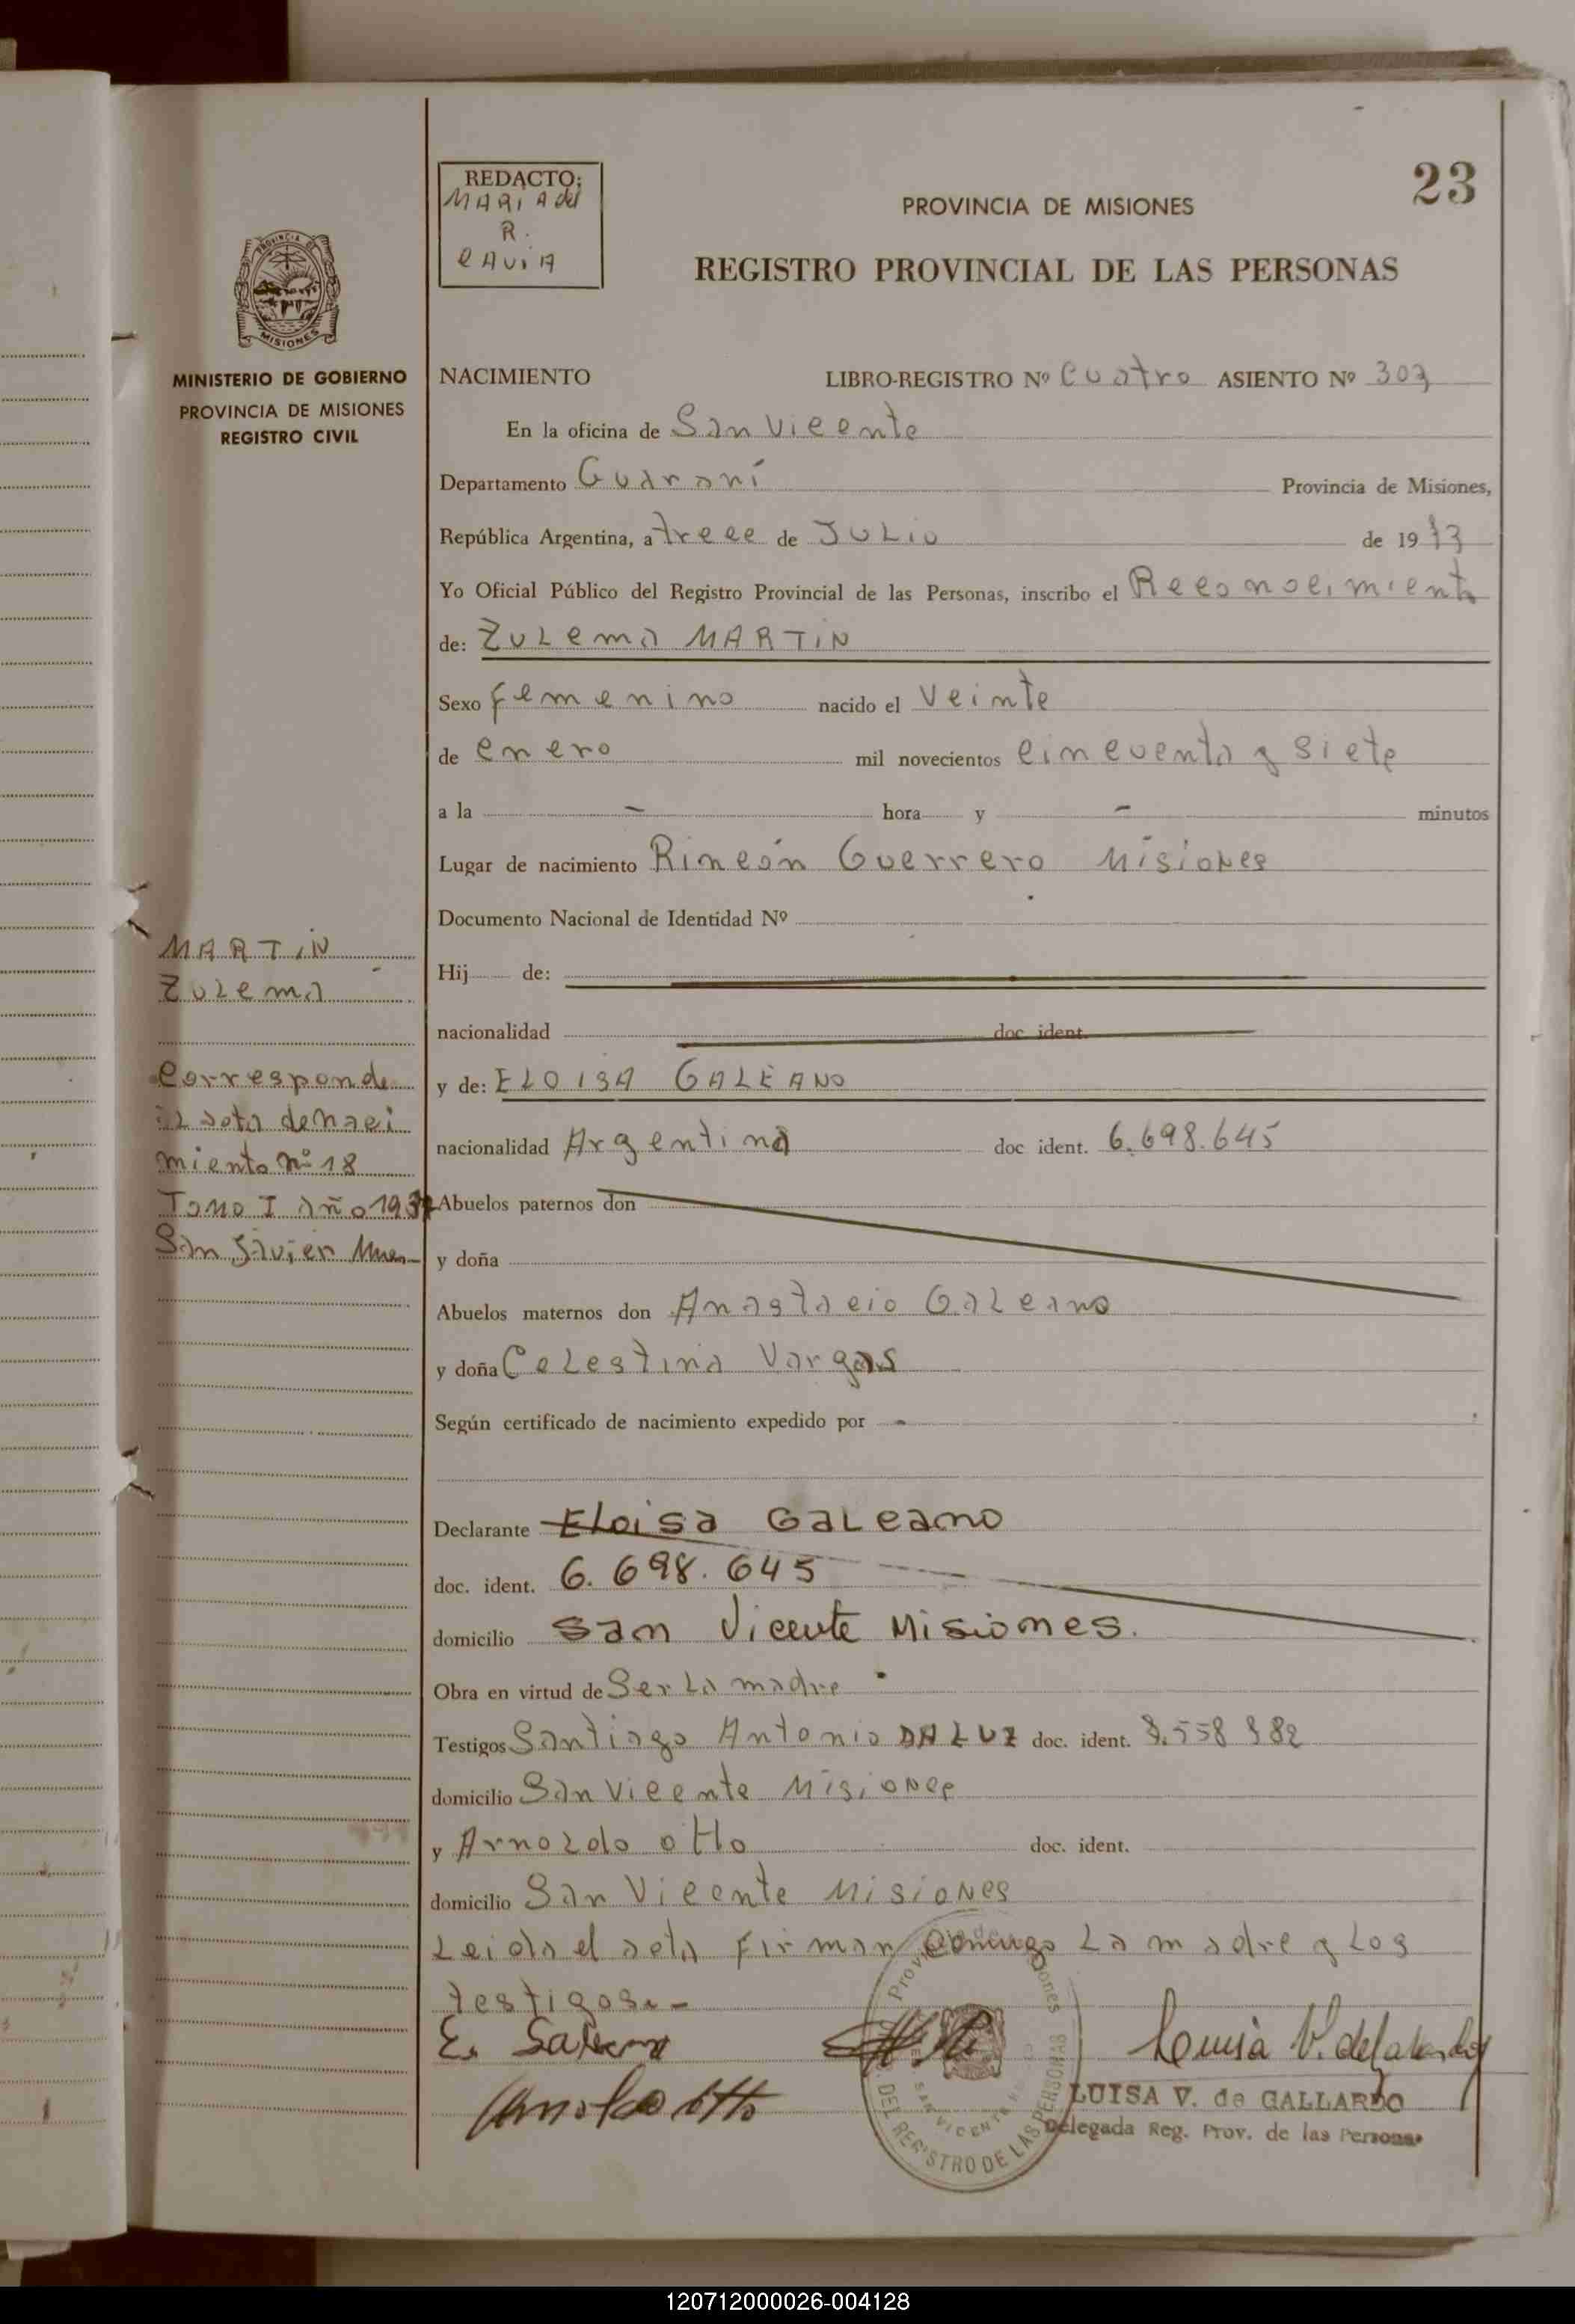 23
REDACTO:
MARIA del
R.
CAVIA
PROVINCIA DE MISIONES
REGISTRO PROVINCIAL DE LAS PERSONAS
PROVINCIA DE
MISIONES
MINISTERIO DE GOBIERNO
PROVINCIA DE MISIONES
REGISTRO CIVIL
NACIMIENTO LIBRO-REGISTRO Nº Cuatro ASIENTO Nº 307
En la oficina de San Vicente
Departamento Guaraní Provincia de Misiones,
República Argentina, a trece de JULio de 1973
Yo Oficial Público del Registro Provincial de las Personas, inscribo el Reconocimiento
de: ZuLema MARTIN
Sexo femenino nacido el Veinte
de enero mil novecientos cincuenta y siete
a la - hora y - minutos
Lugar de nacimiento Rincón Guerrero Misiones
Documento Nacional de Identidad Nº
Hij de:
nacionalidad doc ident.
y de: ELOISA GALEANO
nacionalidad Argentina doc ident. 6.698.645
Abuelos paternos don
y doña
Abuelos maternos don Anastacio GaLeano
y doña CeLestina Vargas
Según certificado de nacimiento expedido por -
MARTIN
ZuLema
Corresponde
aL acta de naci
miento nº 18
Tomo I año 19
San Javier
Declarante ELoisa GaLeano
doc. ident. 6.698.645
domicilio San Vicente Misiones.
Obra en virtud de Ser La madre
Testigos Santiago Antonio DA LUZ doc. ident. 558
domicilio San Vicente Misiones
y ArnoLdo otto doc. ident.
domicilio San Vicente Misiones
Leida el acta firman conmigo La madre y Los
testigos.-
Arnoldo Otto
Luisa V. de Gallardo
LUISA V. de GALLARDO
Delegada Reg. Prov. de las Personas
DEL REGISTRO DE LAS PERSONAS
SAN VICENTE
120712000026-004128